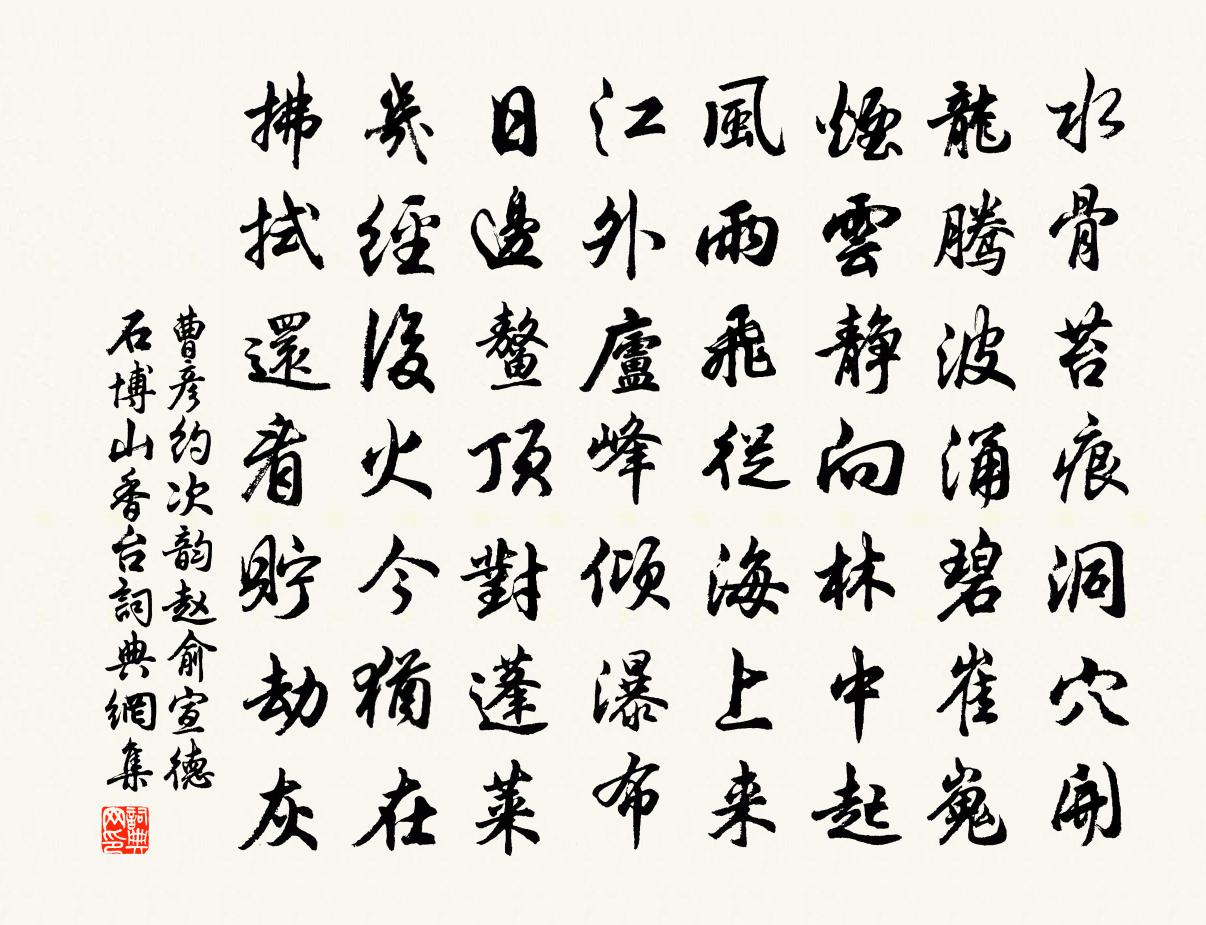 水骨苔痕洞穴開
龍騰波涌碧崔嵬
煙雲静向林中起
風雨飛從海上来
江外廬峰傾瀑布
日邊鰲頂對蓬萊
幾經後火今猶在
拂拭還看貯劫灰
曹彦约次韵赵俞宣德
石博山香台詞典網集
詞典
网印